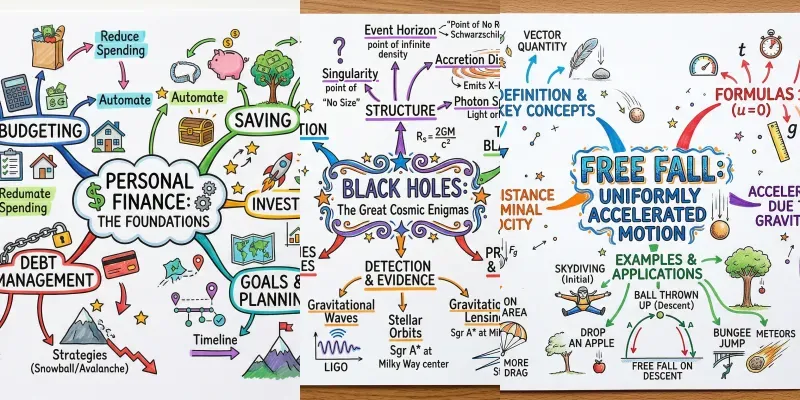 Reduce
Spending
Automate
Automate
BUDGETING
SAVING
PERSONAL
FINANCE:
THE FOUNDATIONS
Redumate
Spending
INVEST
DEBT
MANAGEMENT
GOALS &
PLANNIN
Strategies
(Snowball/Avalanche)
Timeline
Event Horizon
"Point of No R
Schwarzschil
point of infinite
density
?
Singularity
point of
"No Size"
Accretion Di
Emits X-
STRUCTURE
Photon S
Light or
Rs = 2GM
c²
TION
T
BL
BLACK HOLES:
The Great Cosmic Enigmas
ES
PR
&
DETECTION
& EVIDENCE
Gravitational
Waves
LIGO
Stellar
Orbits
Sgr A* at
Milky Way center
Gravitatio
Lensin
Sgr A* at Mil
VECTOR
QUANTITY
EFINITION &
KEY CONCEPTS
t
FORMULAS
(u=0)
g
FREE FALL:
UNIFORMLY
ACCELERATED
MOTION
ISTANCE
MINAL
OCITY
Fg
ACCELER
DUE T
GRAVIT
EXAMPLES &
APPLICATIONS
SKYDIVING
(Initial)
BALL THROWN
UP (Descent)
DROP
AN APPLE
FREE FALL ON
DESCENT
BUNGEE
JUMP
METEORS
ON
AREA
MORE
DRAG